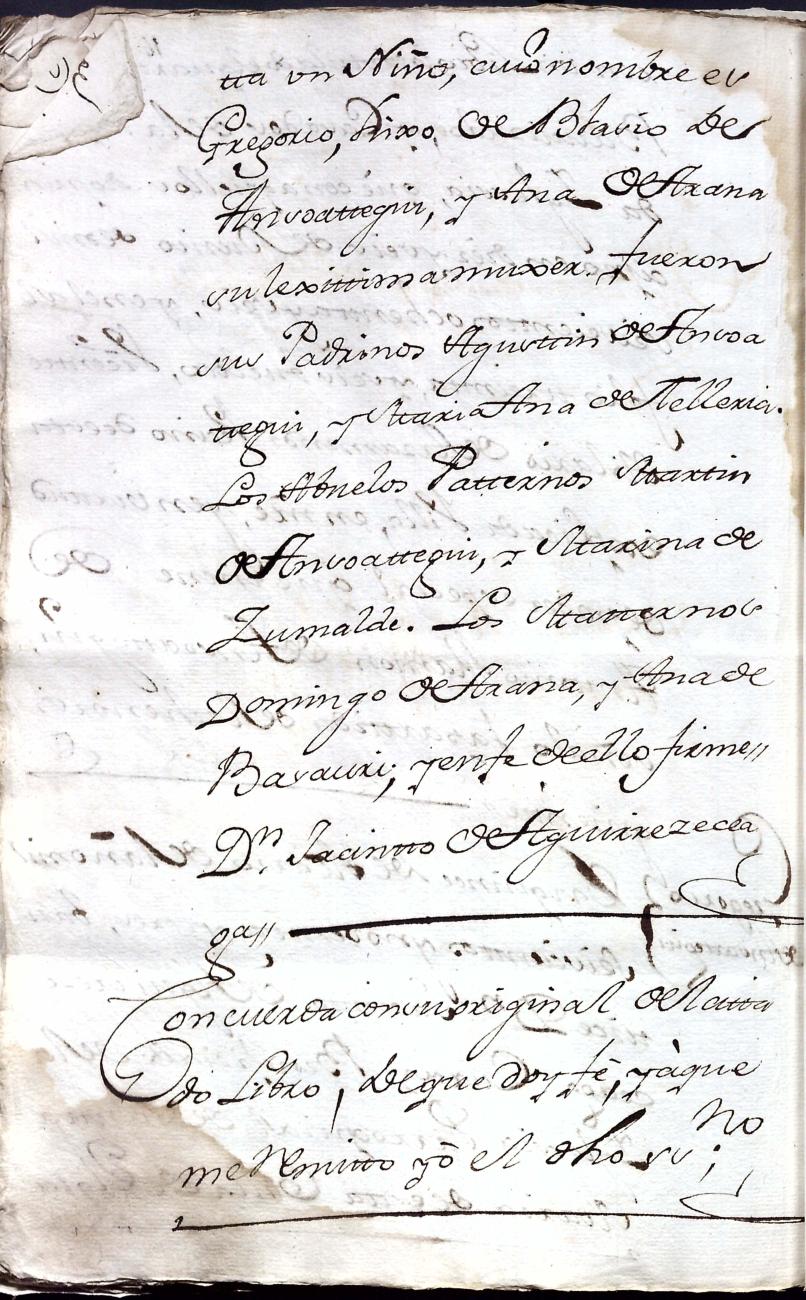 tta vn Niño, cuio nombre es
Gregorio, hixo, de Blasio de
Ansoattegui, y Ana de Arana
su lexittima muxer. fueron
sus Padrinos Agusttin de Ansoa
ttegui, y Maria Ana de Telleria.
Los Abuelos Patternos Martin
de Ansoattegui, y Marina de
Zumalde. Los Matternos
Domingo de Arana, y Ana de
Basauri; y en fe de ello firme //
Dn. Jacintto de Aguirrezecea
ga //
Concuerda con su original del citta
do Libro; de que doy fé, y à que
me Remitto yo el dho ssno;